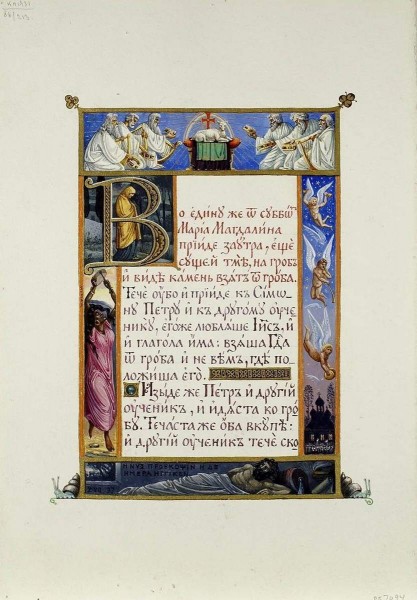 Во єдину же ѿ суббѡт
Марїа Магдалина
прїиде заутра, єще
сущей тмѣ, на гробъ
и видѣ камень взатъ ѿ гроба.
Тече оубо и прїиде къ Сімѡ
ну Петру и къ другому оуче
нику, єгоже люблаше Іисъ, и
и глагола има: взаша Гд̑а
ѿ гроба и не вѣмъ, гдѣ по
ложиша єго.
Изыде же Петръ и другїй
оученикъ, и идѧста ко гро
бу. Течаста же оба вкупѣ:
и другїй оученикъ тече ско